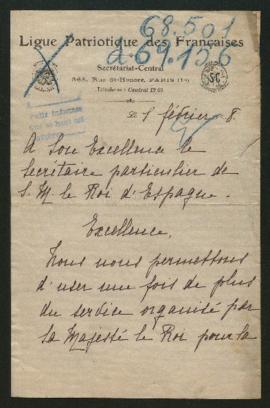 68.501
269.156
Ligue Patriotique des Françaises
Secrétariat-Central
368, Rue St-Honoré, PARIS (1er)
Téléphone: Central
Le 1 février 8.
A Son Excellence le
secrétaire particulier de
S. M. le Roi d'Espagne.
Excellence,
Nous nous permettons
d'user une fois de plus
du service organisé par
Sa Majesté le Roi pour la